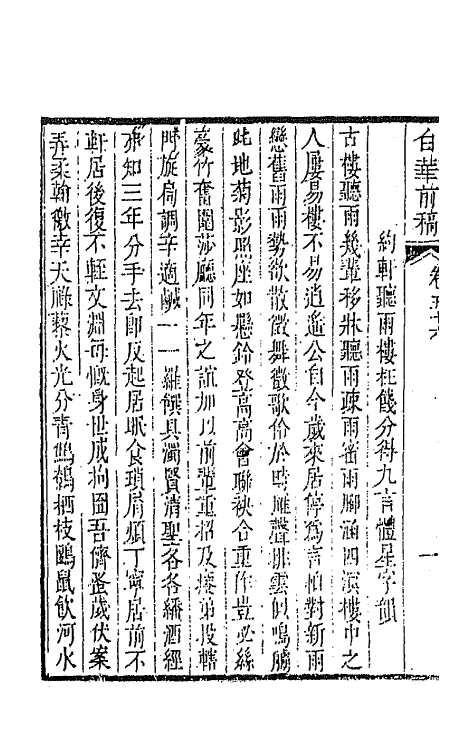 白華前稿　卷五十六　一
約軒聽雨樓枉餞分得九言體星字韻
古樓聽雨幾輩移牀聽雨疎雨密雨腳涵四溟樓中之
人屢易樓不易逍遙公自今歲來居停爲言怕對新雨
戀舊雨雨勢欲散微舞微歌俗於時雁聲排雲似鳴
此地菊影照座如懸鈴登高高會聯袂合重作豈必絲
豪竹奮園莎廳同年之誼加以前輩重招及瘘弟投轄
門旋扃調辛適鹹一一羅饌具濁賢清聖各各繙酒經
亦知三年分手去即反起居眠食瑣屑頻丁寧居前不
軒居後復不輊文淵研慨身世咸拘囹吾儕蚤歲伏案
弄柔翰徼幸天祿藜火光分青鷦鷯栖枝鼴鼠飲河水